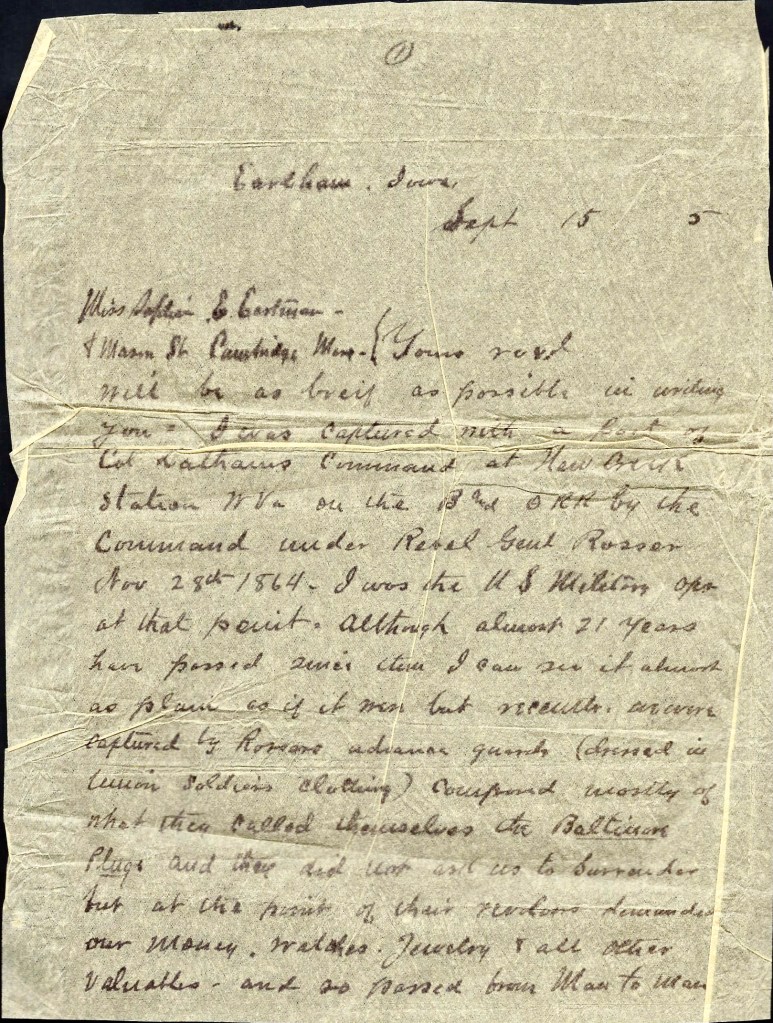 1
Earlham. Iowa.
Sept 15 5
Miss Sophia E. Eastman -
Mason St. Cambridge Mass - { Yours recd
will be as breif as possible in writing
you - I was captured with a part of
Col Lathams Command at New Creek
Station W Va on the B & O RR by the
Command under Rebel Genl Rosser
Nov 28th 1864 - I was the U S Military opr
at that point. Although almost 21 years
have passed since then I can see it almost
as plain as if it were but recently. we were
captured by Rossers advance guards (dressed in
Union Soldiers clothing) composed mostly of
what they called themselves the Baltimore
Plugs and they did not ask us to Surrender
but at the point of their revolvers demanded
our Money, Watches. Jewelry & all other
Valuables - and so passed from Man to Man